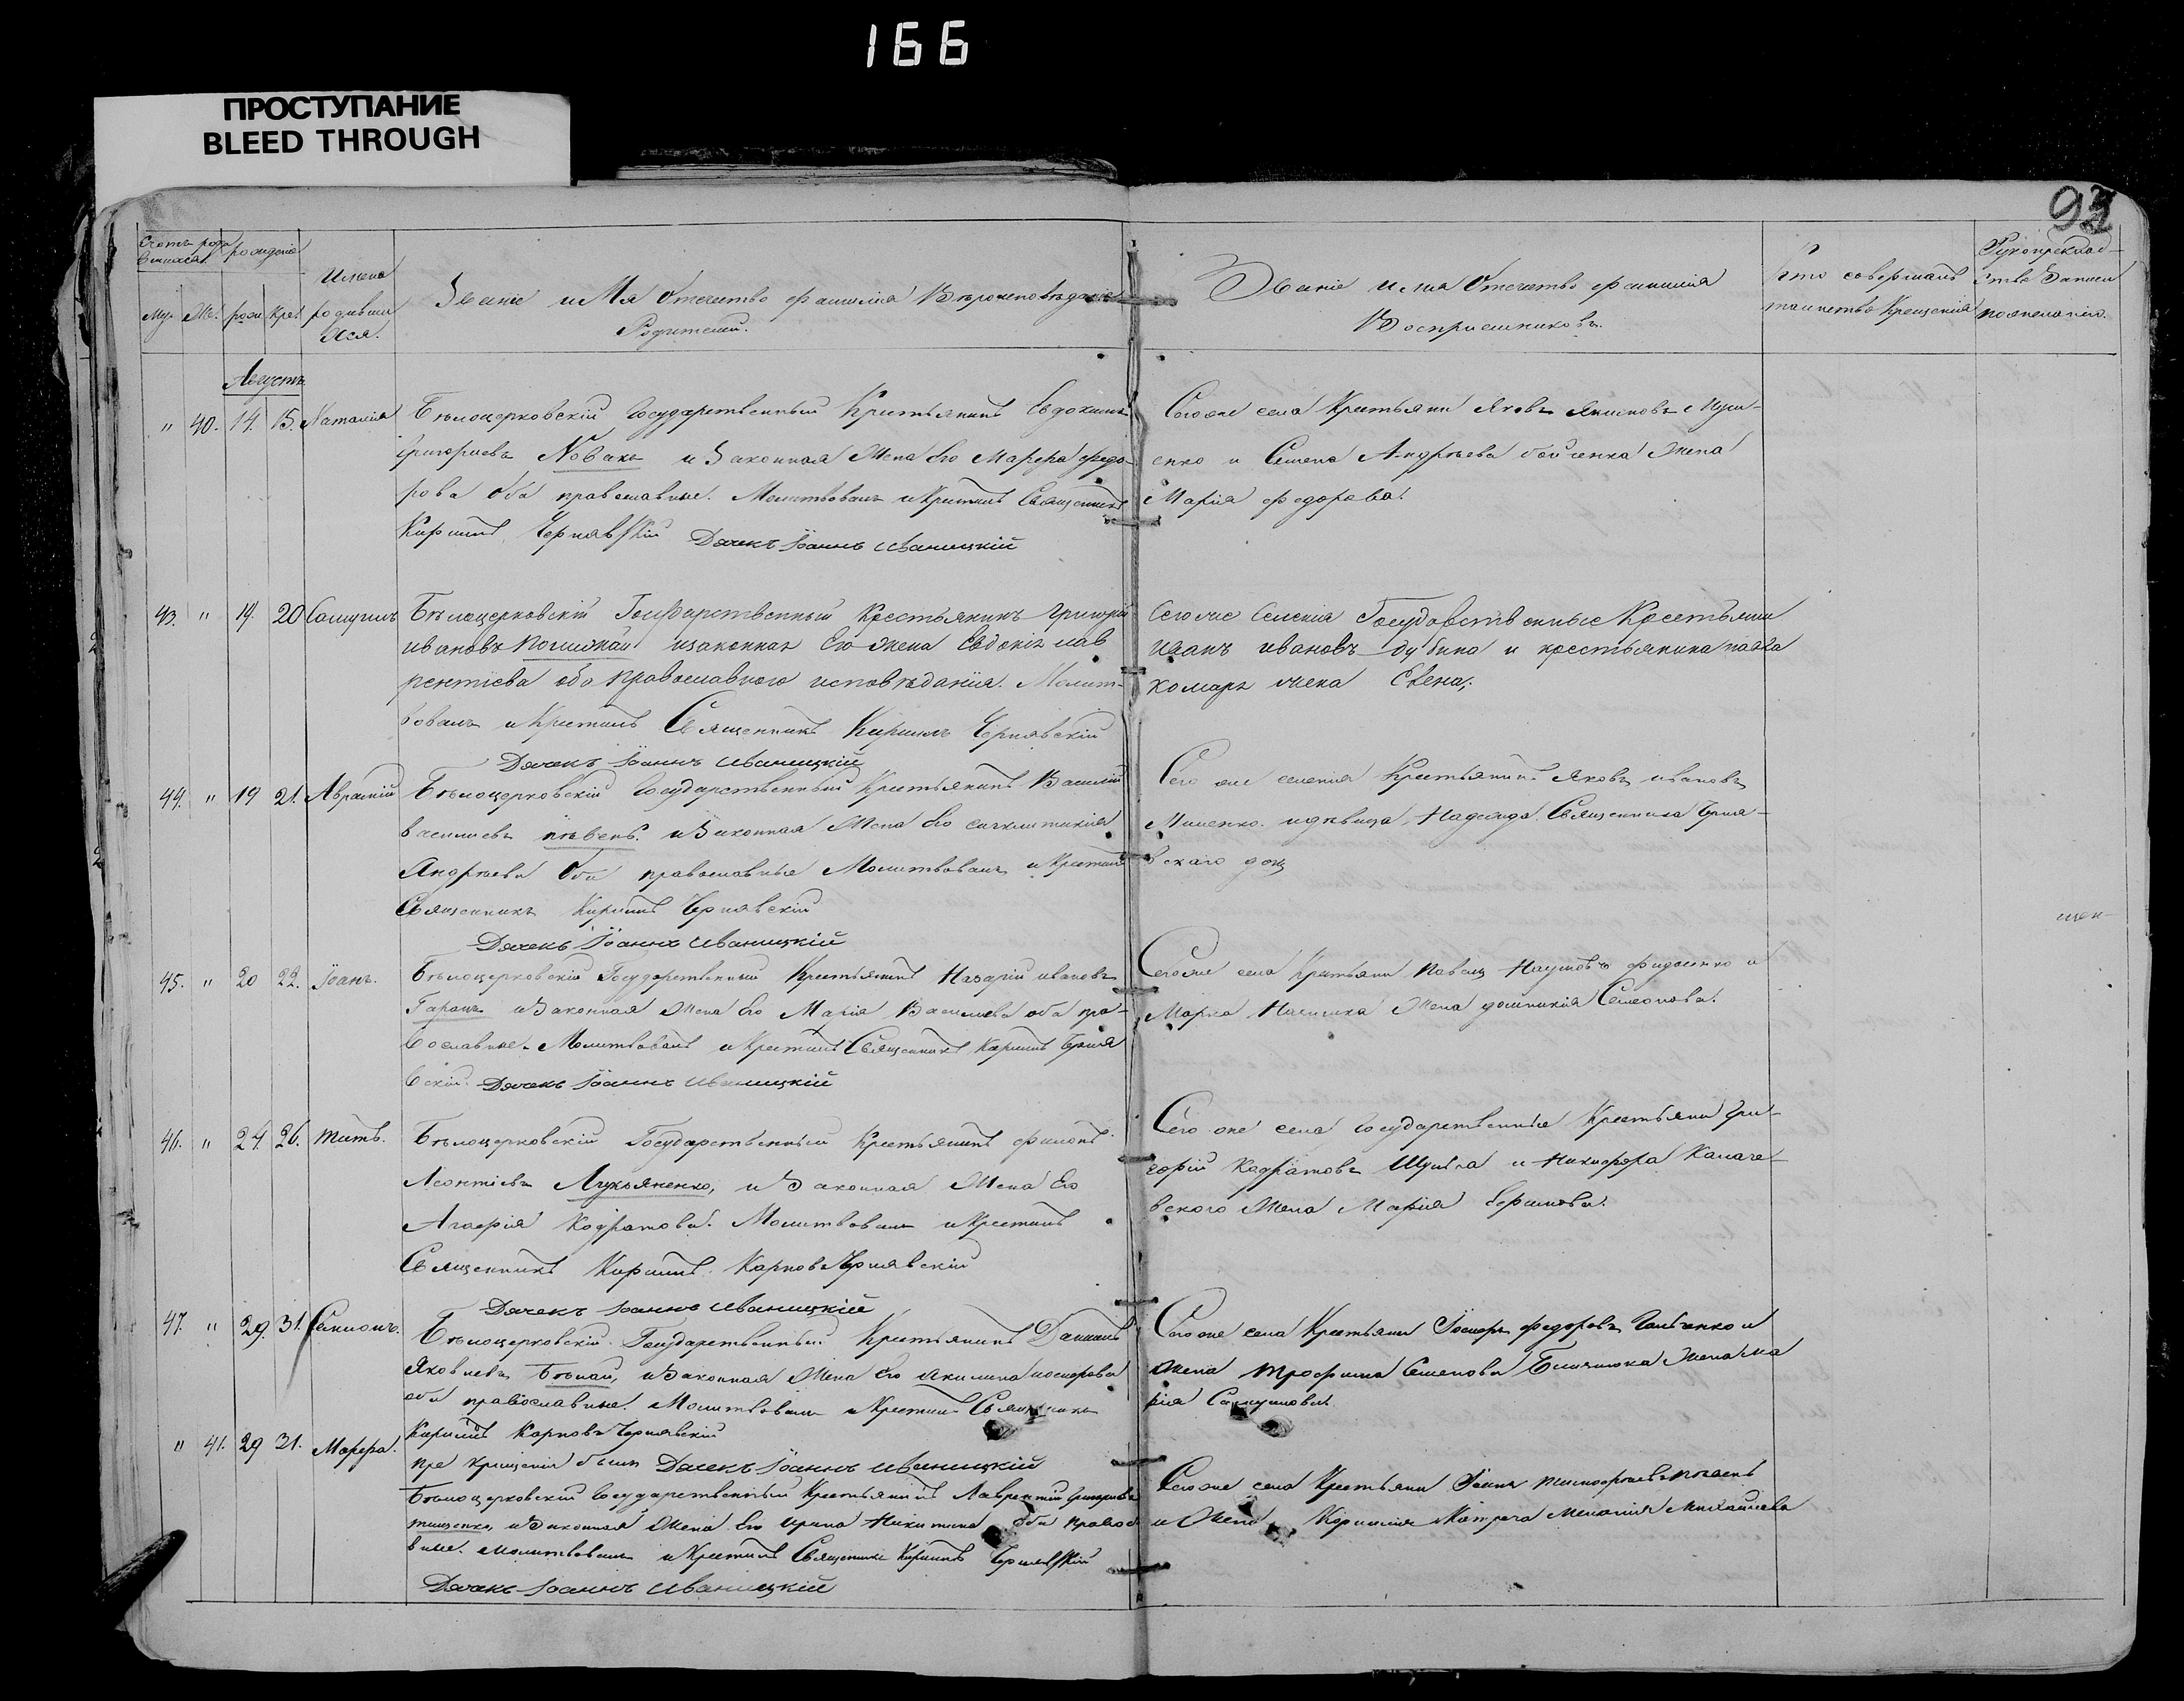 166
ПРОСТУПАНИЕ
BLEED THROUGH
93
Счетъ родившихся
рожденіе
Имена
родивши
хся.
Званіе имя отечество фамилія Вѣроисповѣданіе
Родителей.
Званіе имя Отечество фамилія
Воспріемниковъ.
Кто совершалъ
таинство Крещенія
Рукоприклад-
ства Записи
по желанію.
Муж. Же. рож. Кре.
Августъ
" 40. 14. 15. Наталія
Бѣлоцерковскій Государственный Крестьянинъ Евдокимъ
Григорьевъ Новакъ и Законная Жена Его Марфа Федо-
рова оба православные. Молитвовалъ и Крестилъ Священникъ
Кирилъ Чернявскій Дячекъ Іоаннъ Иваницкій
Сегоже села Крестьяни Яковъ Якимовъ
енко и Семена Андрѣева Бойченка Жена
Марія Федорова.
43. " 19. 20 Самуилъ
Бѣлоцерковскій Государственный Крестьянинъ Григорій
Ивановъ изаконная Его жена Евдокія лав
рентіева обо православного исповѣданія. Молит-
вовалъ и Крестилъ Священникъ Кирилъ Чернявскій
Дячекъ Іоаннъ Иваницкій
Сегоже Селенія Государственные Крестьяни
Иванъ Ивановъ дубина и крестьянина павла
комаръ жена Елена;
44. " 19 21. Аврамій
Бѣлоцерковскій Государственный Крестьянинъ Василій
Василіевъ пѣвень. и Законная Жена Его синклитикія
Андрѣева Оба православные Молитвовалъ и Крестилъ
Священникъ Кирилъ Чернявскій
Дячекъ Іоаннъ Иваницкій
Сего же селенія Крестьянинъ Яковъ Ивановъ
Миненко. идѣвица Надежда Священника Черня-
вскаго дощ
45. " 20 22. Іоанъ.
Бѣлоцерковскій Государственный Крестьянинъ Назарій Ивановъ
Таранъ и Законная Жена Его Марія Василіева оба пра-
вославные. Молитвовалъ и Крестилъ Священникъ Кирилъ Черня
вскій. Дячекъ Іоаннъ Иваницкій
Сегоже села Крестьяни Павелъ Наумовъ и
Марка Жена домникія Семеонова.
46. " 24. 26. Титъ.
Бѣлоцерковскій Государственный Крестьянинъ Филипъ
Леонтіевъ Лукьяненко, и Законная Жена Его
Агафія Кодратова. Молитвовалъ и Крестилъ
Священникъ Кирилъ Карповъ Чернявскій
Дячекъ Іоаннъ Иваницкій
Сего же села Государственные Крестьяни Гри-
горій Кодратовъ Шулга и Никифора Калаче-
вского Жена Марія
47. " 29. 31. Самсонъ.
Бѣлоцерковскій Государственный Крестьянинъ Даніилъ
Яковлевъ Бѣлай, и Законная Жена Его Акилина Иосифова
оба православные. Молитвовалъ и Крестилъ Священникъ
Кирилъ Карповъ Чернявскій
пре крищеніи былъ Дячекъ Іоаннъ Иваницкій
Сегоже села Крестьяни Іосифъ Федоровъ Галченко и
Жена Трофима Семенова Жена Ма
рія Самуилова.
" 41. 29 31. Марфа.
Бѣлоцерковскій Государственный Крестьянинъ Лаврентій Григорьевъ
тищенко, и Законная Жена Его Ирина Никитина оба правос
вные. Молитвовалъ и Крестилъ Священникъ Кирилъ Чернявскій
Дячекъ Іоаннъ Иваницкій
Сегоже села Крестьяни Тимофѣевъ
и Жена Меланія Михайлова